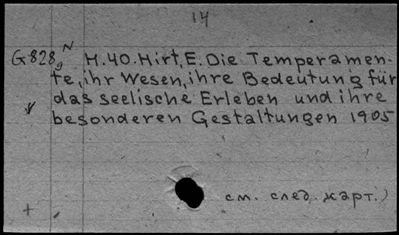 14
G828g N H.40.Hirt, E. Die Temperamen-
te, ihr Wesen, ihre Bedeutung für
das seelische Erleben und ihre
besonderen Gestaltungen 1905
см. след. карт.)
+